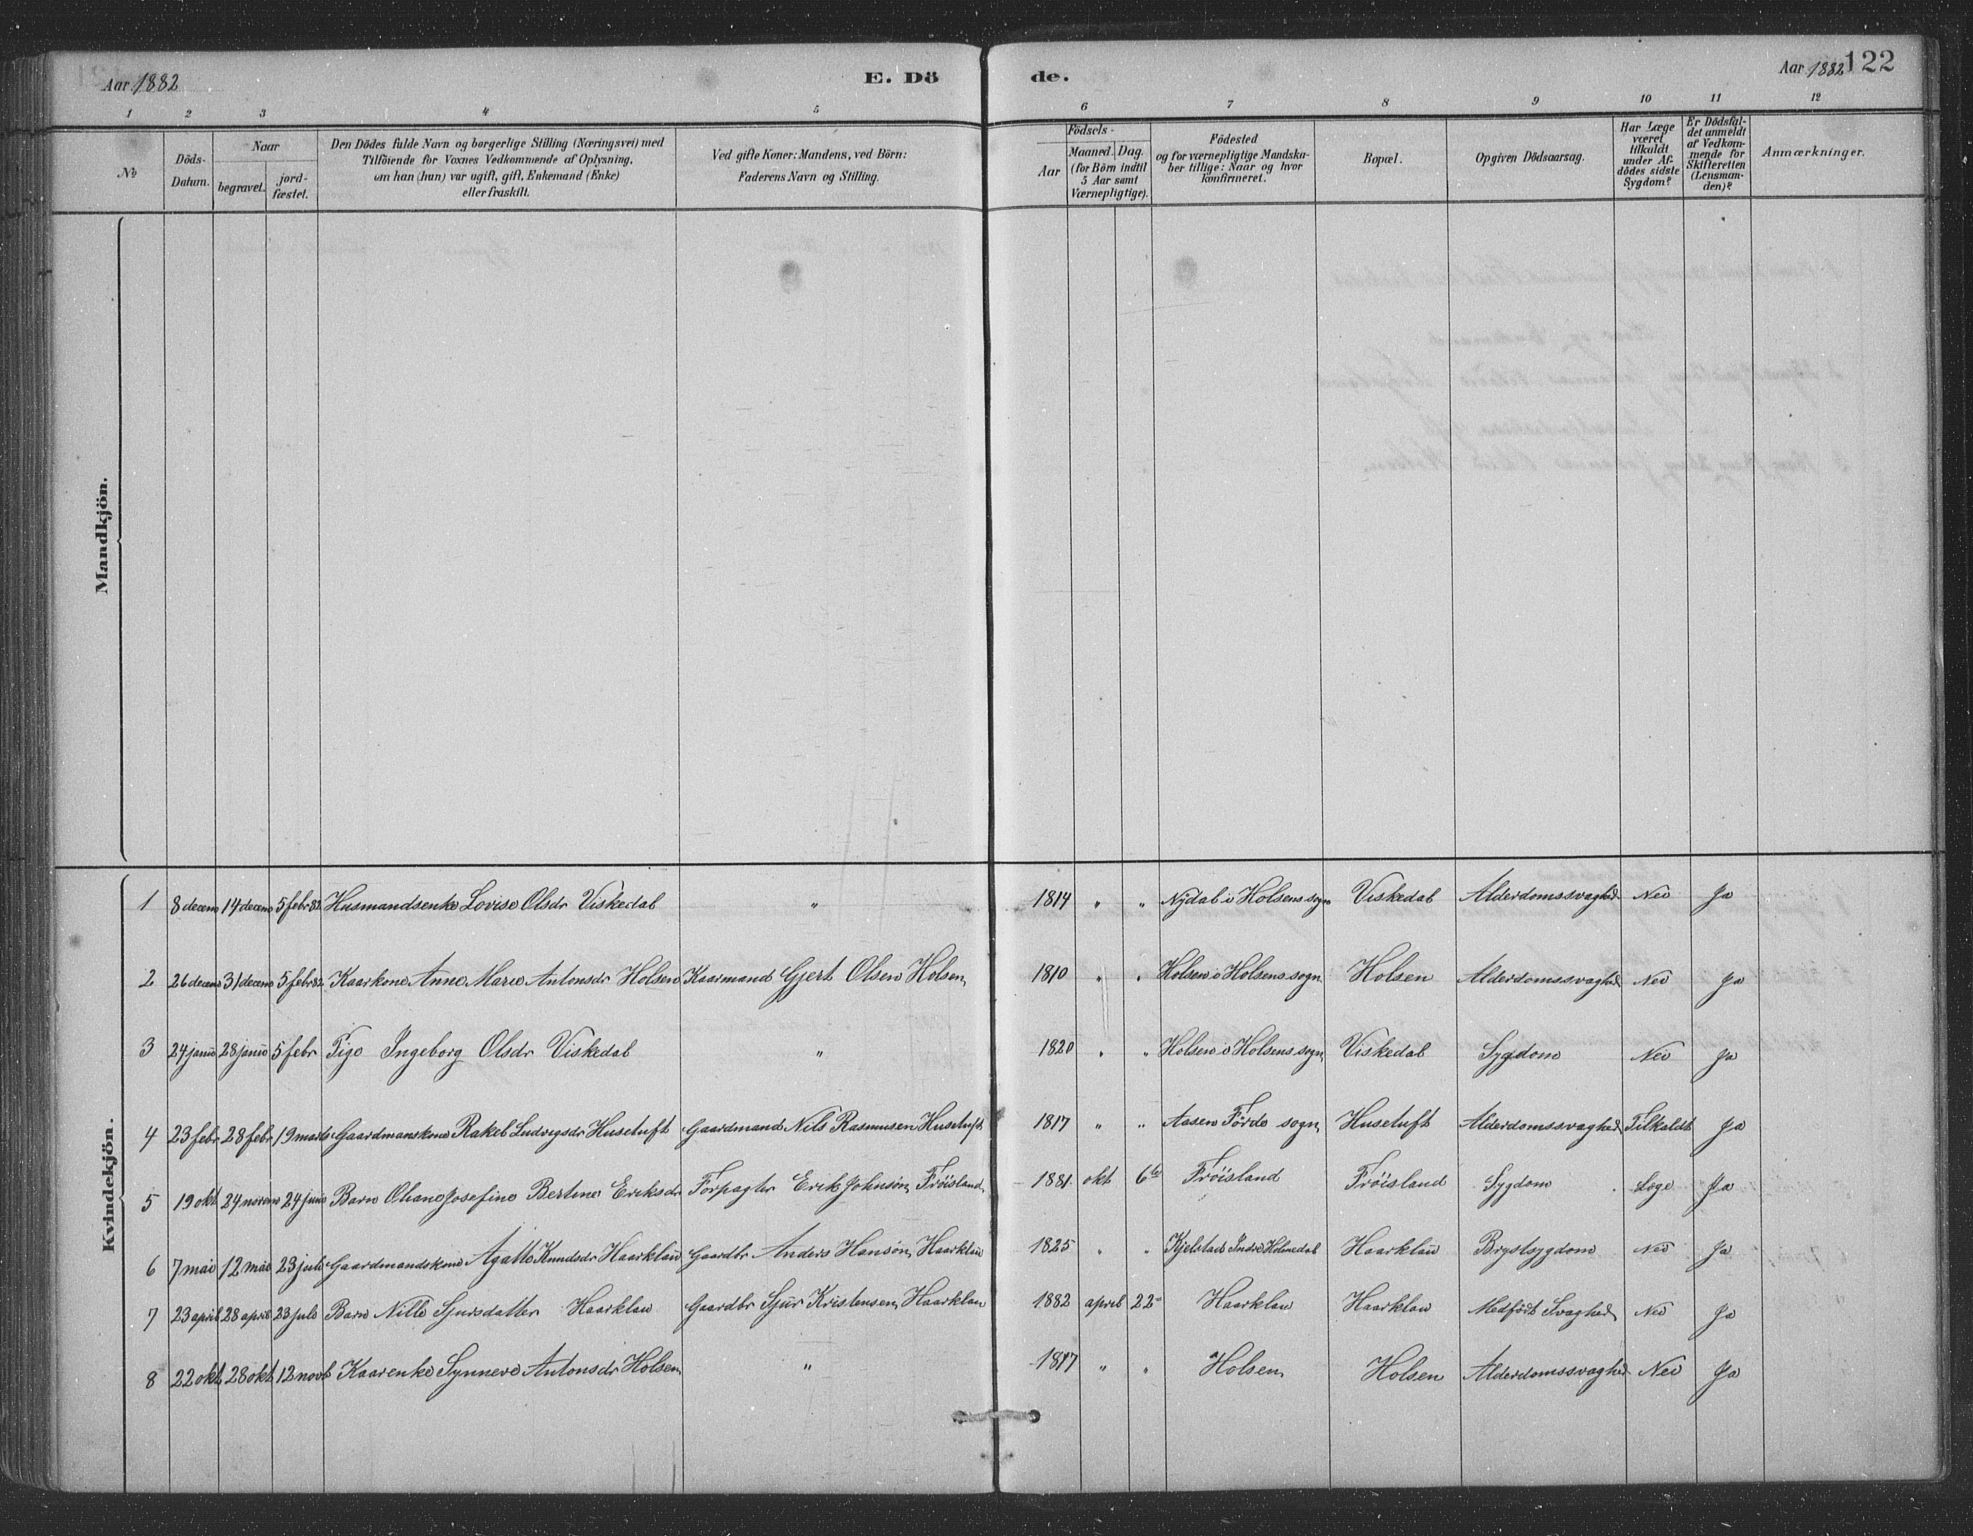 Aar 1882
E. Dö
de.
Aar 1882
122
1 2 3 4 5 6 7 8 9 10 11 12
No
Döds-
Datum.
Naar
begravet.
jord-
fæstet.
Den Dödes fulde Navn og borgerlige Stilling (Næringsvei) med
Tilföiende for Voxnes Vedkommende af Oplysning,
om han (hun) var ugift, gift, Enkemand (Enke)
eller fraskilt.
Ved gifte Koner: Mandens, ved Börn:
Faderens Navn og Stilling.
Födsels-
Aar
Maaned. Dag.
(for Börn indtil
5 Aar samt
Værnepligtige).
Födested
og for værnepligtige Mandska-
ber tillige: Naar og hvor
konfirmeret.
Bopæl.
Opgiven Dödsaarsag.
Har Læge
været
tilkaldt
under Af-
dödes sidste
Sygdom?
Er Dödsfal-
det anmeldt
af Vedkom-
mende for
Skifteretten
(Lensman-
den)?
Anmærkninger.
Mandkjön.
Kvindekjön.
1 8 decem 14 decem 5 febr 82 Husmandsenke Lovise Olsdr Viskedal " 1814 " " Nydal i Holsens sogn Viskedal Alderdomssvaghed Nei Ja
2 26 decem 31 decem 5 febr 82 Kaarkone Anne Marie Antonsdr Holsen Kaarmand Gjert Olsen Holsen 1810 " " Holsen i Holsens sogn Holsen Alderdomssvaghed Nei Ja
3 24 janu 28 janu 5 febr Pige Ingeborg Olsdr Viskedal " 1820 " " Holsen i Holsens sogn Viskedal Sygdom Nei Ja
4 23 febr 28 febr 19 marts Gaardmanskone Rakel Ludvigsdr Husetuft Gaardmand Nils Rasmusen Husetuft 1817 " " Aasen Førde sogn Husetuft Alderdomssvaghed Tilkaldt Ja
5 19 okt 24 novem 24 juni Barn Oliane Josefine Bertine Eriksdr Forpagter Erik Johnson Frøisland 1881 okt 6te Frøisland Frøisland Sygdom Læge Ja
6 7 mai 12 mai 23 juli Gaardmandskone Agatte Knudsdr Haarklau Gaardbr Anders Hanson Haarklau 1825 " " Kjelstad Indre Holmedal Haarklau Brystsygdom Nei Ja
7 23 april 28 april 23 juli Barn Nille Sjursdatter Haarklau Gaardbr Sjur Kristensen Haarklau 1882 april 22 Haarklau Haarklau Medfødt Svaghed Nei Ja
8 22 okt 28 okt 12 novb Kaarenke Synneve Antonsdr Holsen " 1817 " " Holsen Holsen Alderdomssvaghed Nei Ja